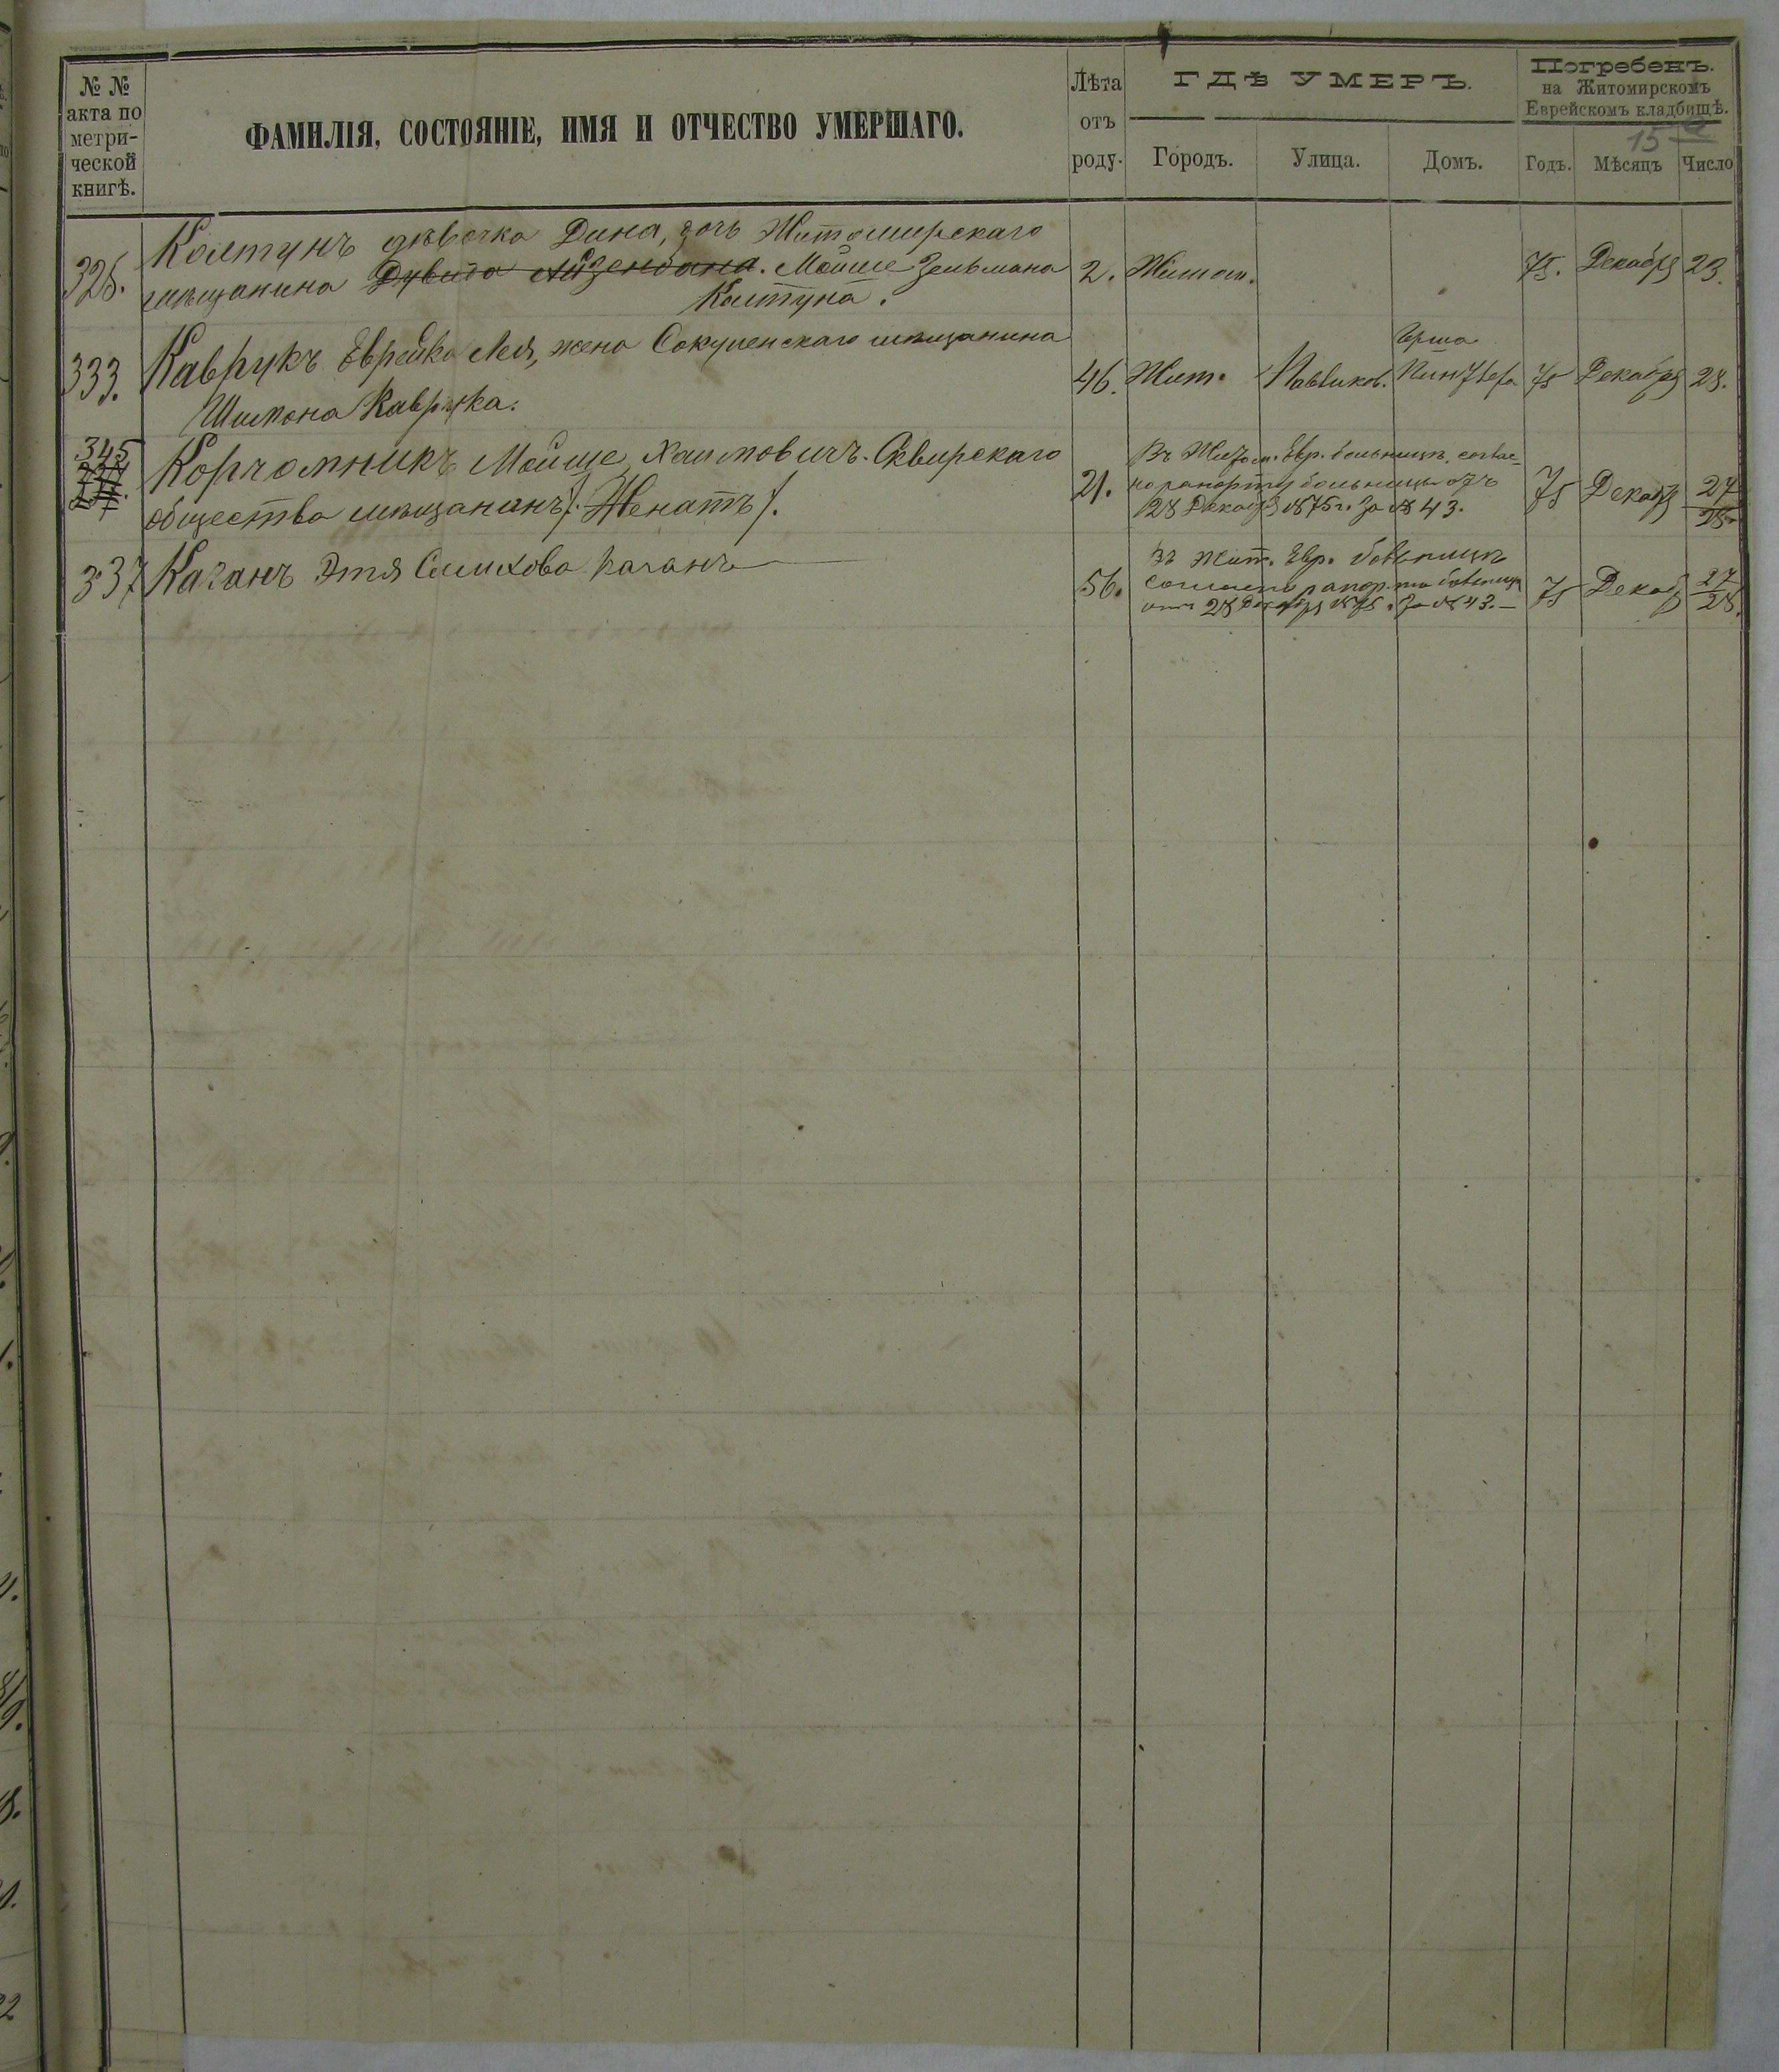 № №
акта по
метри-
ческой
книгѣ.
ФАМИЛІЯ, СОСТОЯНІЕ, ИМЯ И ОТЧЕСТВО УМЕРШАГО.
Лѣта
отъ
роду.
ГДѢ УМЕРЪ.
Городъ.
Улица.
Домъ.
Погребенъ.
на Житомирскомъ
Еврейскомъ кладбищѣ.
15
Годъ.
Мѣсяцъ
Число
Колтунъ дѣвочка Дина, дочь Житомирскаго
325. мѣщанина Дувида Айзенбана. Мойше Зельмана 2. Житом. 75. Декабря 23.
Колтуна.
333. Каврукъ Еврейка Лея, жена Сокуленскаго мѣщанина
Шимона Каврука.
46. Жит. Павликов. Герша Пинзбера 75 Декабря 28.
345
Корчомникъ Мойше Хаимовичъ Сквирскаго
общества мѣщанинъ /. Женатъ /.
21.
Въ Житом. Евр. больницѣ, соглас-
но рапорту больницы отъ
28 Декабр 1875 г. За № 43.
75 Декабр 27
28
337 Каганъ Этя Симхова Каганъ
56.
Въ Жит. Евр. больницѣ
согласно рапорта больницы
отъ 28 Декабря 1875 г. За № 43.—
75 Декаб 27
28.